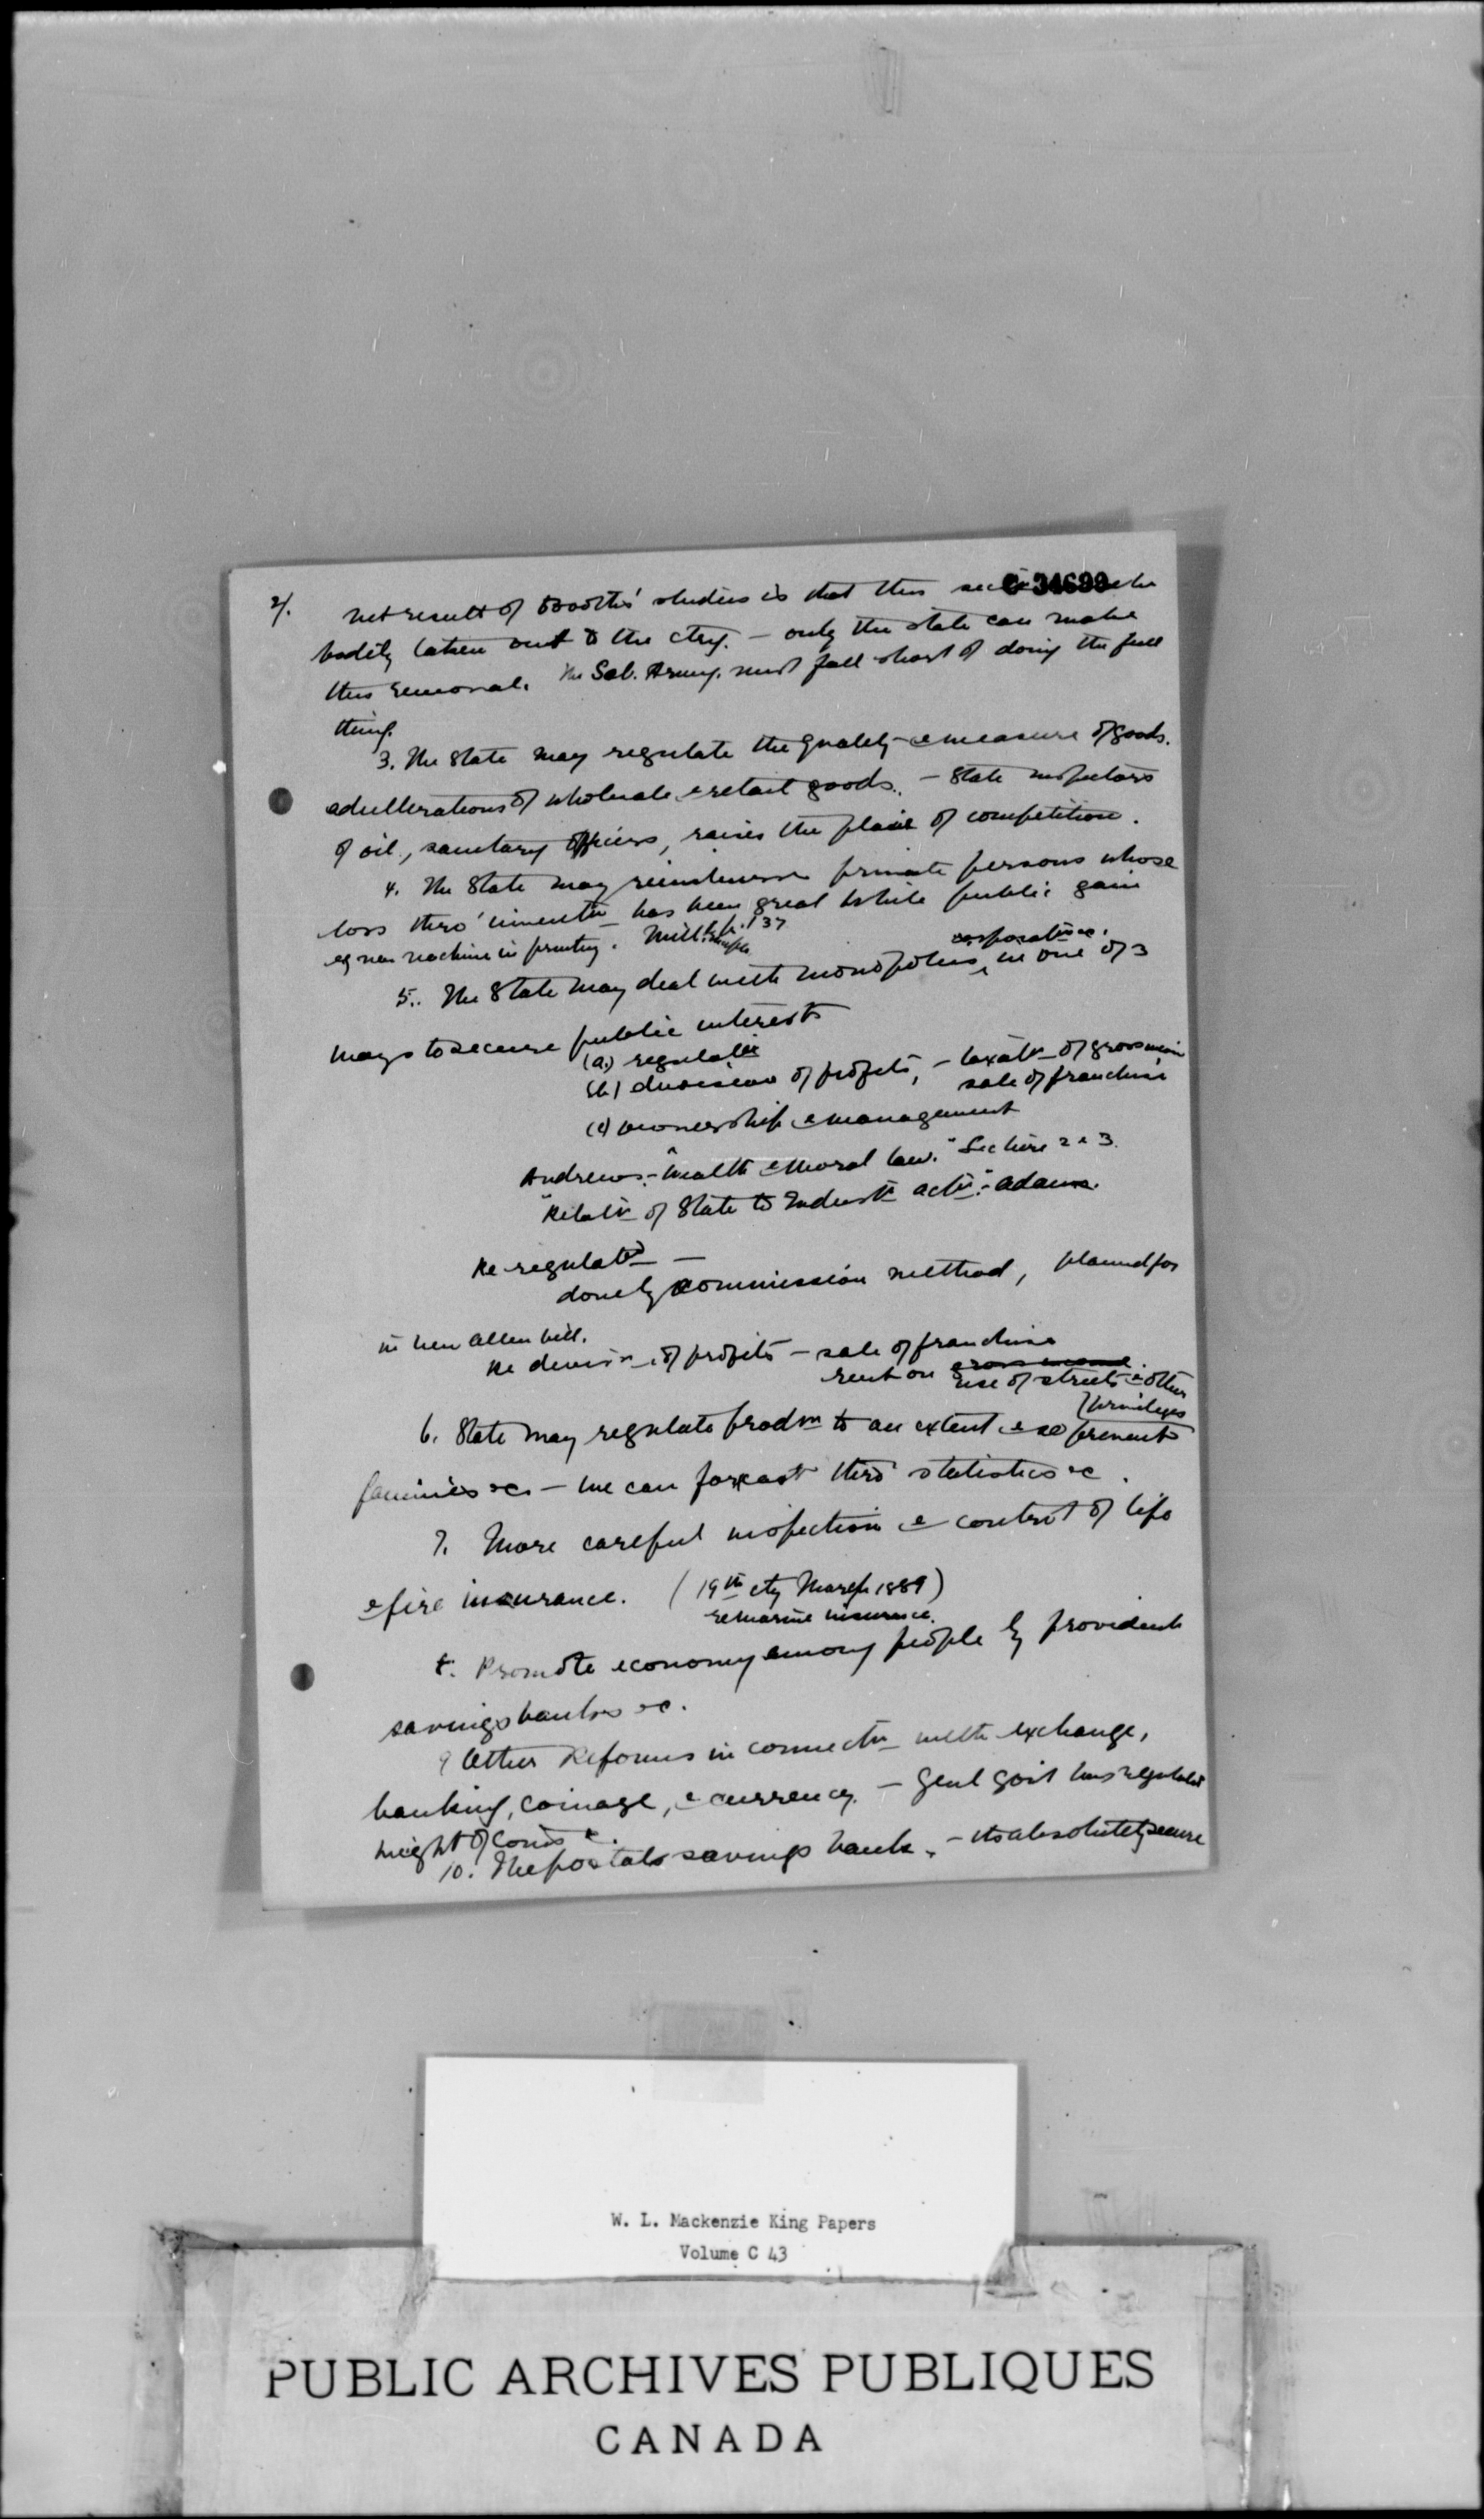 C 34699
2/. net result of Booths' studies is that this be
bodily taken out to the ctry. — only the state can make
this removal. The Sal. Army. must fall short of doing the full
thing.
3. The State may regulate the quality & measure of goods.
adulterations of wholesale & retail goods. — State inspectors
of oil, sanitary officers, raises the plane of competition.
4. The State may reimburse private persons whose
loss thro' inventn has been great while public gain
eg new machine in printing. Mill p. 137
corporations.
5. The State may deal with monopolies ‸ in one of 3
ways to secure public interests
(a) regulatn
(b) division of profits, — taxatn of gross
sale of franchise
(c) ownership & management
Andrews - "Wealth & Moral law." Section 2 & 3.
"Relatn of State to Industl actn" - Adams.
Re-regulatn —
done by commission method, planned for
in new Allen bill.
Re divisn of profits — sale of franchise
rent on gross income.
use of streets & other
privileges
6. State may regulate prodn to an extent & so prevent
famines &c — we can forecast thro' statistics &c.
7. More careful inspection & control of life
& fire insurance. (19th cty March 1889)
re marine insurance.
8. Promote economy among people by provident
savings banks &c.
9 Other Reforms in connectn with exchange,
banking, coinage, & currency. — Genl govt has regulated
weight of coins &.
10. The postal savings bank. — its absolutely secure
W. L. Mackenzie King Papers
Volume C 43
PUBLIC ARCHIVES PUBLIQUES
CANADA